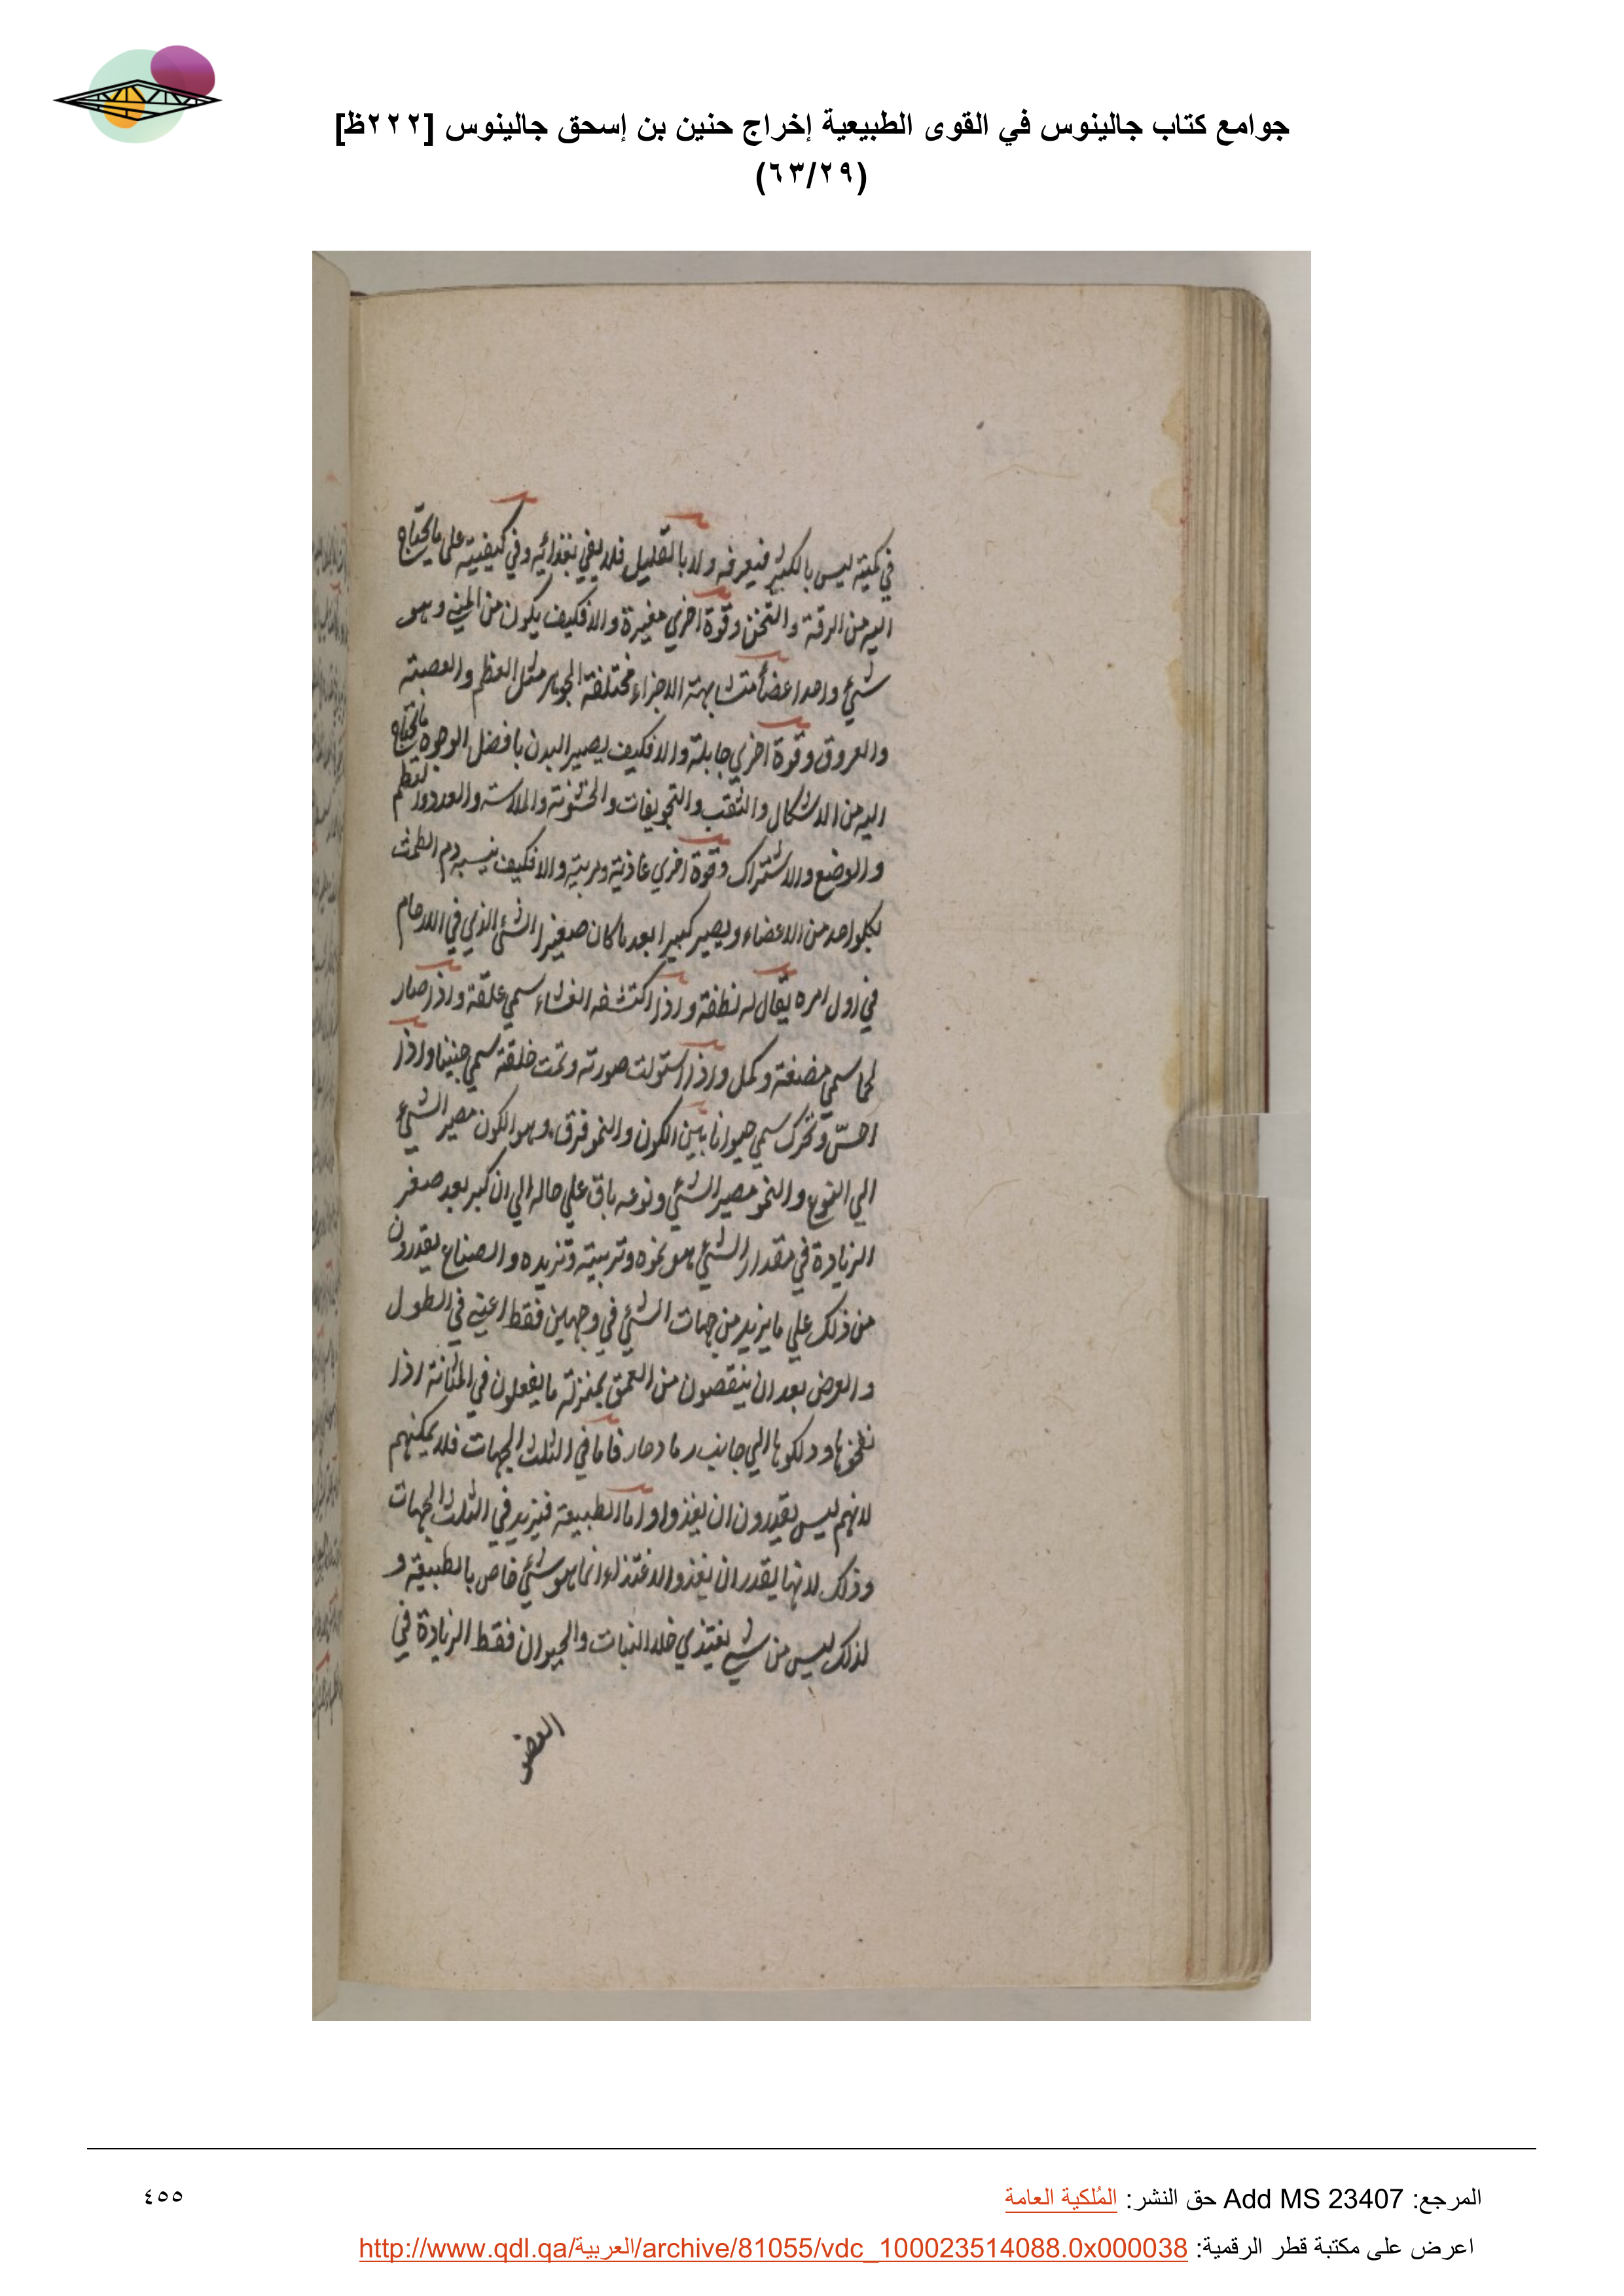 جوامع كتاب جالينوس في القوى الطبيعية إخراج حنين بن إسحق جالينوس [٢٢٢ظ]
(٦٣/٢٩)
في كميته ليس بالكثير فيعرفه ولا بالقليل فلا يفي بغذائه وفي كيفيته على ما يحتاج
اليه من الرقة والثخن وقوة اخري مغيرة والا فكيف يكون من المني وهو
شيء واحد اعضأ متشابهة الاجزاء مختلفة الجوهر مثل العظم والعصبة
والعروق وقوة اخري جابلة والا فكيف يصير البدن بافضل الوجوه ما يحتاج
اليه من الاشكال والثقب والتجويفات والخشونة والملاسة والعدد والعظم
والوضع والاشتراك وقوة اخري غاذية ومربية والا فكيف يتشبه دم الطمث
بكلواحد من الاعضاء ويصير كبيرا بعد ما كان صغيرا الشئ الذي في الارحام
في اول امره يقال له نطفة واذا اكتشفه الغشاء سمي علقة واذا صار
لحما سمي مضغة وكمل واذا استولت صورته وتمت خلقة سمي جنينا واذا
احسّ وتحرك سمي حيوانا بين الكون والنمو فرق وهو الكون مصير الشيء
الي النوع والنمو مصير الشئ ونوعه باق علي حاله الي ان كبر بعد صغر
الزيادة في مقدار الشئ هو نموه وتربيته وتزيده والصناع يقدرون
من ذلك علي ما يزيد من جهات الشئ في وجهين فقط اعني في الطول
والعرض بعد ان ينقصون من العمق بمنزلة ما يفعلون في المثانة اذا
نفخوها ودلكوها الي جانب رماد حار فاما في الثلث الجهات فلا يمكنهم
لانهم ليس يقدرون ان يغذوا واما الطبيعة فيزيد في الثلث الجهات
وذلك لانها يقدر ان يغذو الاغتذاء انما هو شئ خاص بالطبيعة و
لذلك ليس من شي يغتذي خلا النبات والحيوان فقط الزيادة في
العضو
المرجع: Add MS 23407 حق النشر: المُلكية العامة
٤٥٥
اعرض على مكتبة قطر الرقمية: http://www.qdl.qa/العربية/archive/81055/vdc_100023514088.0x000038